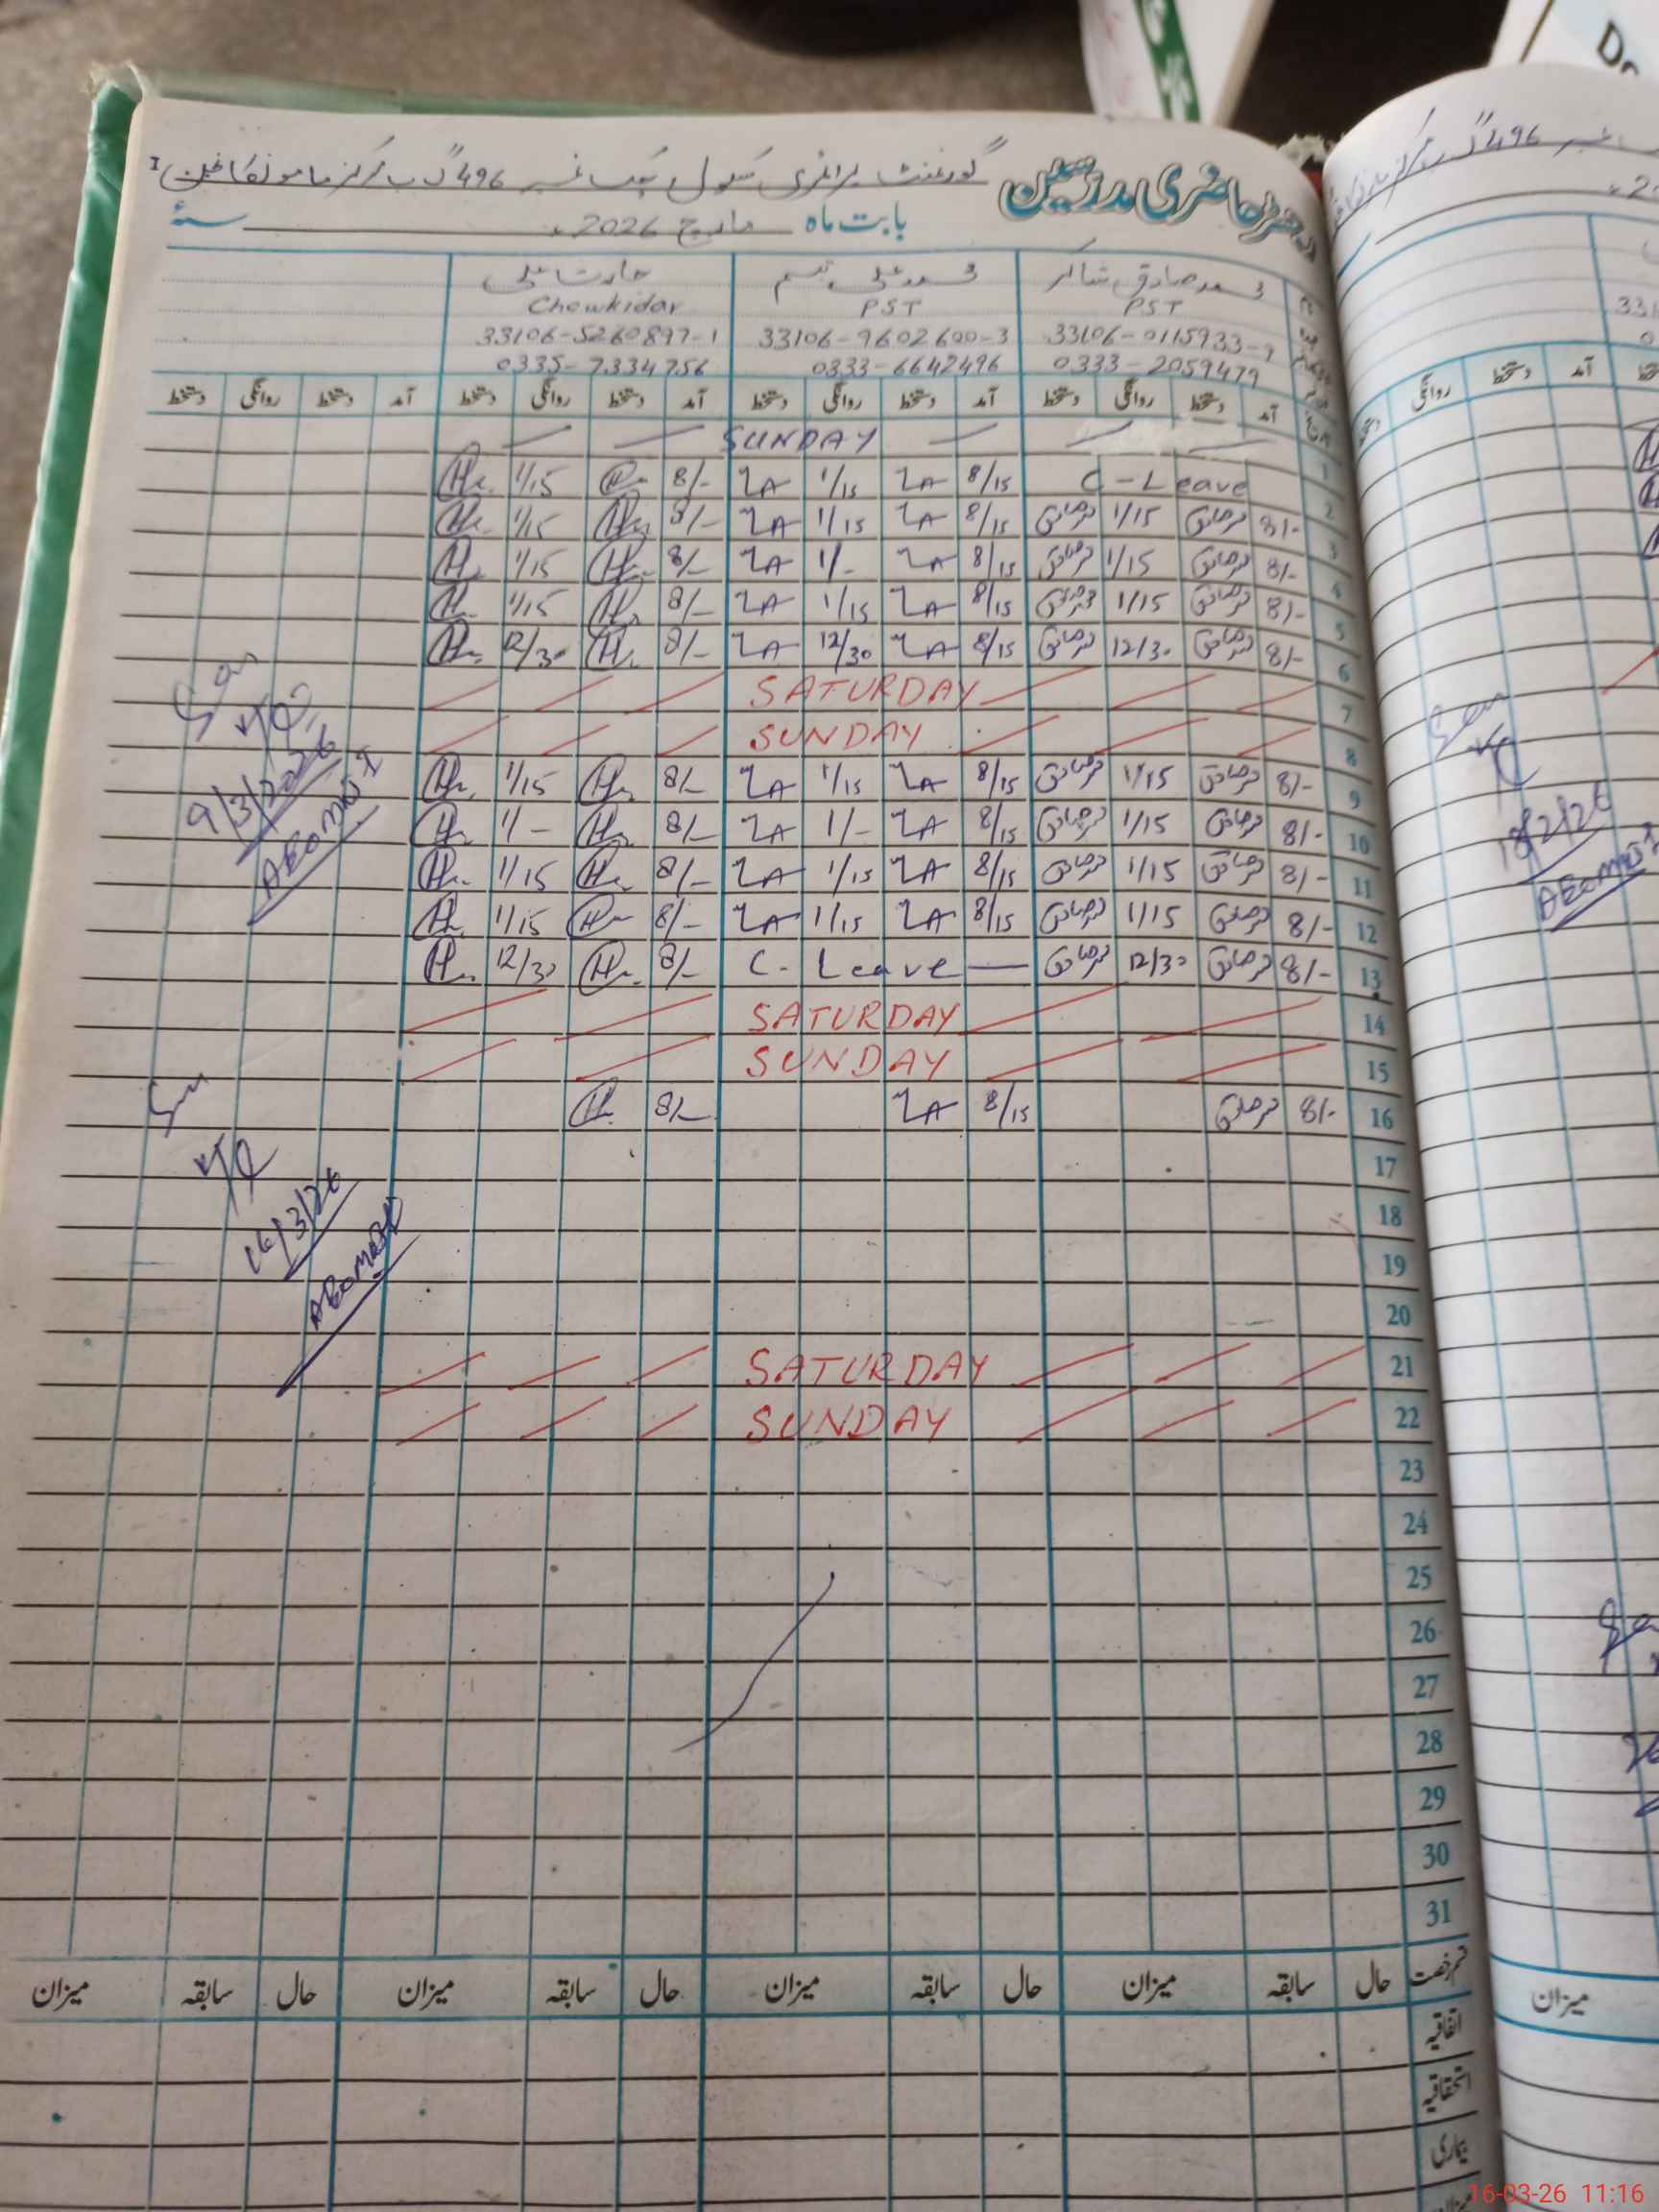 دفتر حاضری مدرسین گورنمنٹ پرائمری سکول چک نمبر 496 گ ب مرکز ماموں کانجن I
بابت ماہ مارچ 2026ء سنہ
محمد صادق شاکر محمد علی تبسم علی
PST PST Chowkidar
33106-0115933-9 33106-9602600-3 33106-5260897-1
0333-2059479 0333-6642496 0335-7334756
آمد دستخط روانگی دستخط آمد دستخط روانگی دستخط آمد دستخط روانگی دستخط آمد دستخط روانگی دستخط
1 SUNDAY
2 C-Leave 8/15 ZA 1/15 ZA 8/- 1/15
3 8/- محمد صادق 1/15 محمد صادق 8/15 ZA 1/15 ZA 8/- 1/15
4 8/- محمد صادق 1/15 محمد صادق 8/15 ZA 1/- ZA 8/- 1/15
5 8/- محمد صادق 1/15 محمد صادق 8/15 ZA 1/15 ZA 8/- 1/15
6 8/- محمد صادق 12/30 محمد صادق 8/15 ZA 12/30 ZA 8/- 12/30
7 SATURDAY
8 SUNDAY
9 8/- محمد صادق 1/15 محمد صادق 8/15 ZA 1/15 ZA 8/- 1/15
10 8/- محمد صادق 1/15 محمد صادق 8/15 ZA 1/- ZA 8/- 1/-
11 8/- محمد صادق 1/15 محمد صادق 8/15 ZA 1/15 ZA 8/- 1/15
12 8/- محمد صادق 1/15 محمد صادق 8/15 ZA 1/15 ZA 8/- 1/15
13 8/- محمد صادق 12/30 محمد صادق C-Leave 8/- 12/30
14 SATURDAY
15 SUNDAY
16 8/- محمد صادق 8/15 ZA 8/-
17
18
19
20
21 SATURDAY
22 SUNDAY
23
24
25
26
27
28
29
30
31
9/3/2026
16/3/26
قسم رخصت حال سابقہ میزان حال سابقہ میزان حال سابقہ میزان حال سابقہ میزان
اتفاقیہ
استحقاقیہ
بیماری
496 گ ب
18/2/26
روانگی دستخط آمد
میزان
16-03-26 11:16